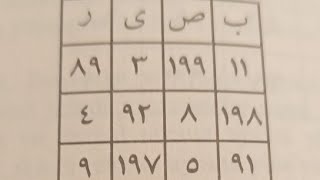 ب ص ی ر
١١ ١٩٩ ٣ ٨٩
١٩٨ ٨ ٩٢ ٤
٩١ ٥ ١٩٧ ٩